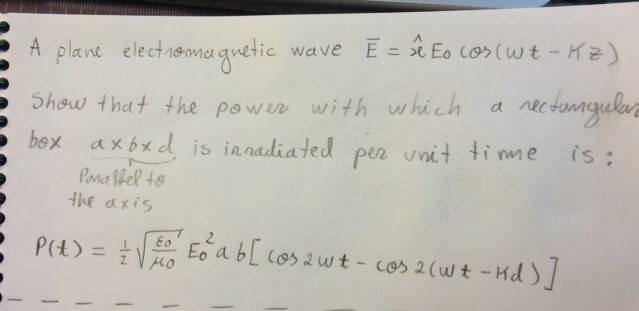 A plane electromagnetic wave Ē = x̂ E₀ cos(ωt - Kz)
Show that the power with which a rectangular
box a×b×d is irradiated per unit time is:
Parallel to
the axis
P(t) = ½ √(ε₀/μ₀) E₀² a b [ cos 2ωt - cos 2(ωt - Kd) ]